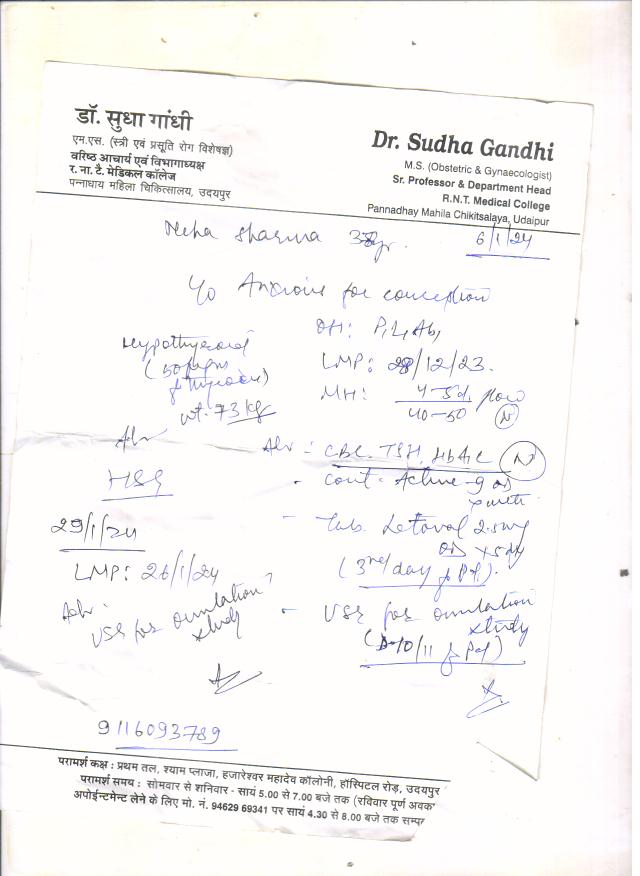 डॉ. सुधा गांधी
एम.एस. (स्त्री एवं प्रसूति रोग विशेषज्ञ)
वरिष्ठ आचार्य एवं विभागाध्यक्ष
र. ना. टै. मेडिकल कॉलेज
पन्नाधाय महिला चिकित्सालय, उदयपुर
Dr. Sudha Gandhi
M.S. (Obstetric & Gynaecologist)
Sr. Professor & Department Head
R.N.T. Medical College
Pannadhay Mahila Chikitsalaya, Udaipur
Neha Sharma yr. 6/1/24
Anxious for conception
OH: P1 L1 Ab1
Hypothyroid
(50
thyroxine)
wt. 73 kg
LMP: 28/12/23.
MH: 4-5d. flow
40-50 N
Adv
HSG
Adv: CBC. TSH, HbA1c N
- cont. Active-g OD
- Tab. Letoval 2.5mg
OD x 5 day
(3rd day of Pd).
- USG for ovulation
study
(D-10/11 of Pd)
29/1/24
LMP: 26/1/24
Adv:
USG for ovulation
study
9116093789
परामर्श कक्ष : प्रथम तल, श्याम प्लाजा, हजारेश्वर महादेव कॉलोनी, हॉस्पिटल रोड़, उदयपुर
परामर्श समय : सोमवार से शनिवार - सायं 5.00 से 7.00 बजे तक (रविवार पूर्ण अवका
अपोईन्टमेन्ट लेने के लिए मो. नं. 94629 69341 पर सायं 4.30 से 8.00 बजे तक सम्पर